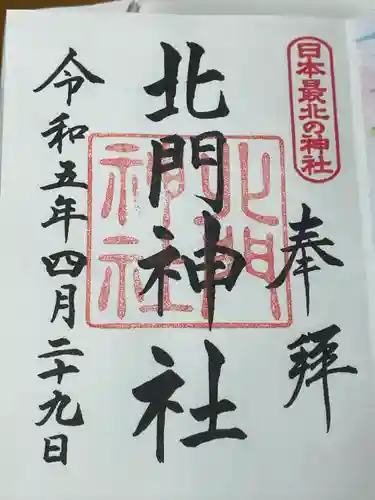 日本最北の神社
奉拝
北門神社
北門
神社
令和五年四月二十九日